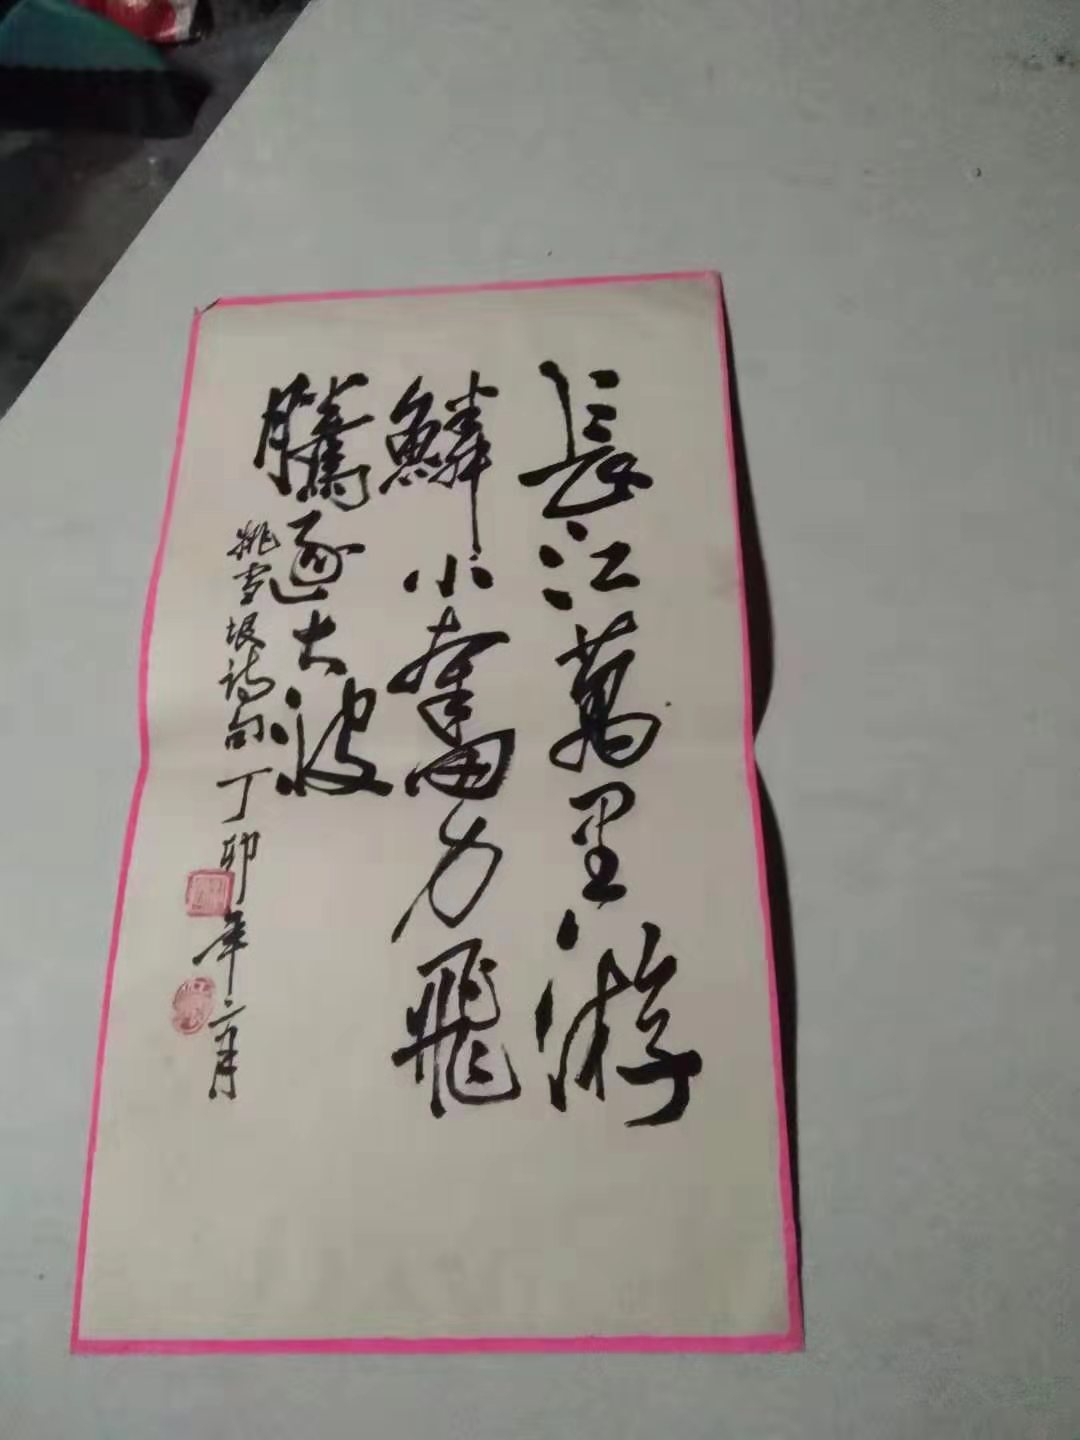 長江萬里游
鱗小奮力飛
騰逐大波
姚雪垠诗句丁卯年六月